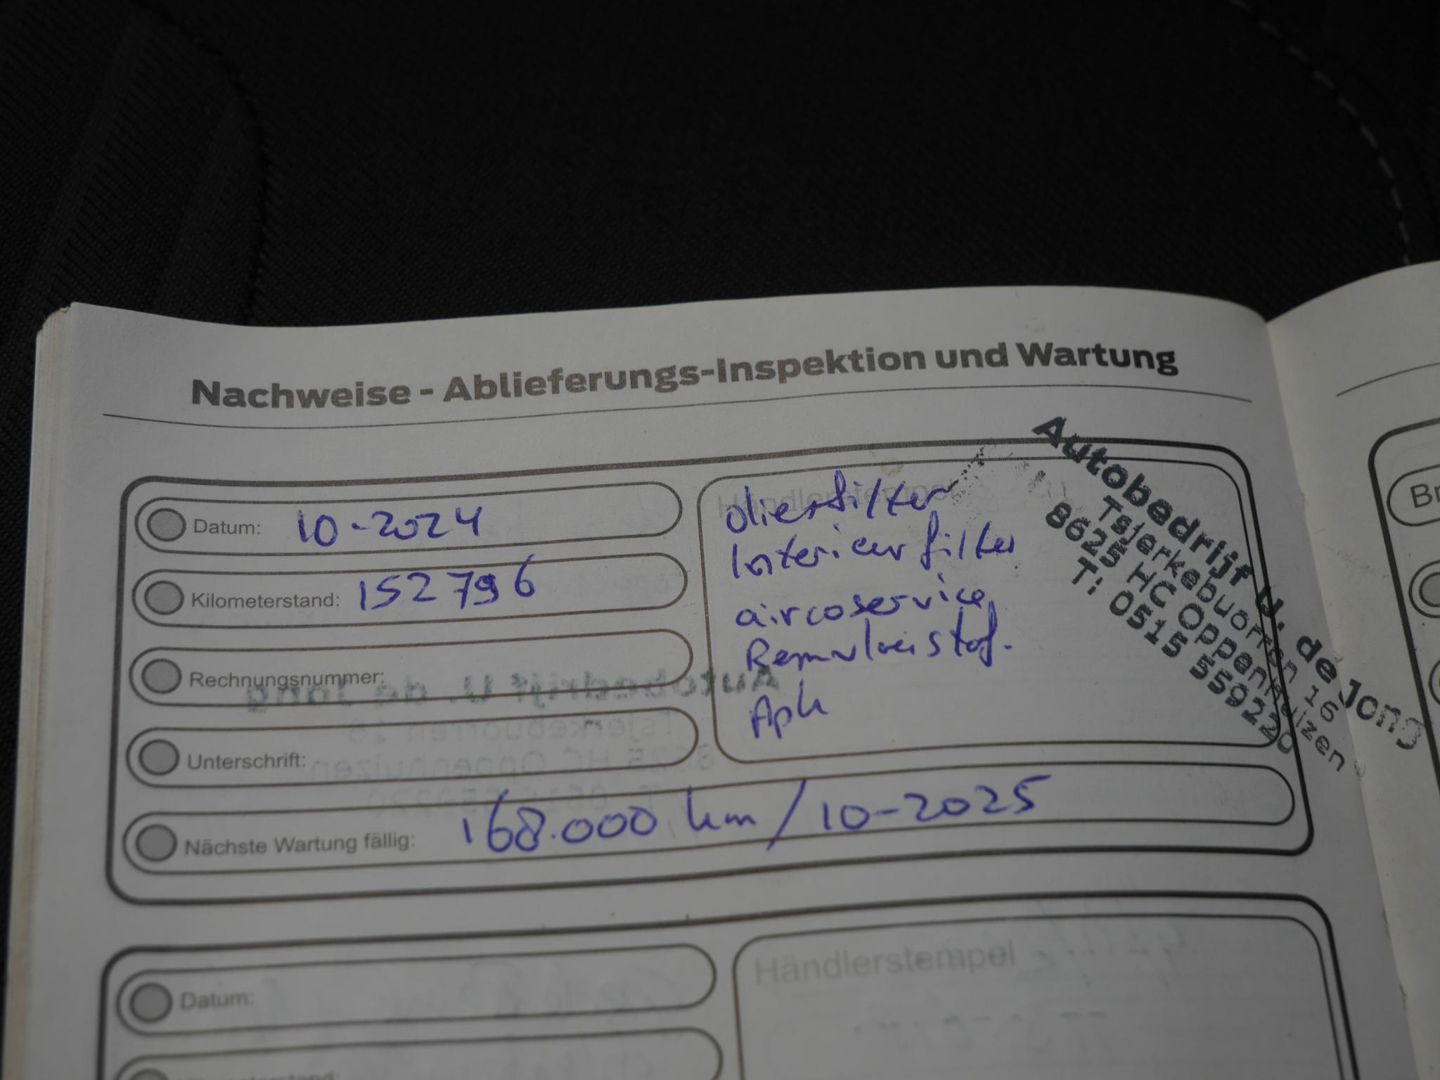 Nachweise - Ablieferungs-Inspektion und Wartung
Datum: 10-2024
Kilometerstand: 152796
Rechnungsnummer:
Unterschrift:
Nächste Wartung fällig: 168.000 km / 10-2025
Händlerstempel
oliefilter
Interieurfilter
aircoservice
Remvloeistof.
Apk
Autobedrijf U. de Jong
Tsjerkebuorren 16
8625 HC Oppenhuizen
T: 0515 559220
Datum:
Händlerstempel